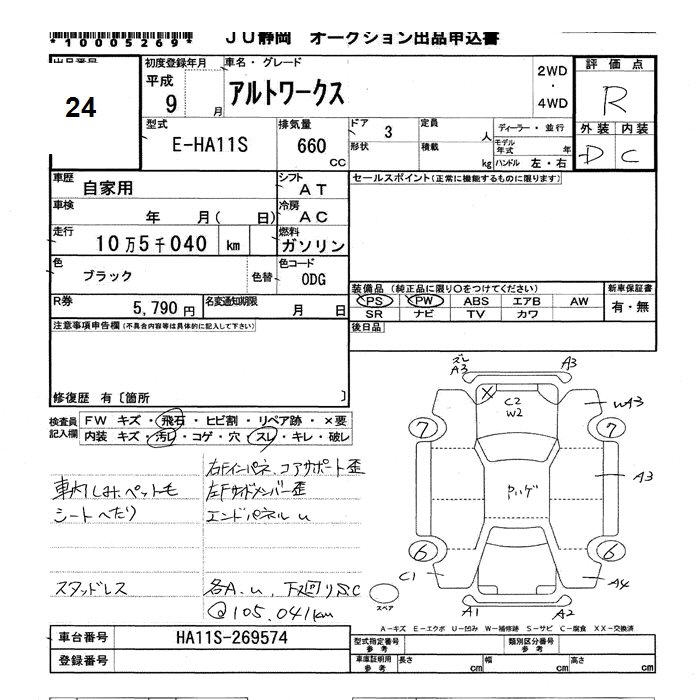 *10005269*
JU静岡 オークション出品申込書
出品番号
24
初度登録年月
平成
9 月
車名・グレード
アルトワークス
2WD
・
4WD
評価点
R
外装 内装
D C
型式
E-HA11S
排気量
660 CC
ドア 3
形状
定員 人
積載 kg
ディーラー・並行
モデル年式 年
ハンドル 左・右
車歴
自家用
シフト
AT
セールスポイント(正常に機能するものに限ります)
車検
年 月( 日)
冷房
AC
走行
10万5千040 km
燃料
ガソリン
色
ブラック
色替
色コード
0DG
装備品 (純正品に限り○をつけてください)
PS PW ABS エアB AW
SR ナビ TV カワ
新車保証書
有・無
R券
5,790 円
名変通知期限
月 日
後日品
注意事項申告欄(不具合内容等は具体的に記入して下さい)
修復歴 有〔箇所 〕
検査員
記入欄
FW キズ・飛石・ヒビ割・リペア跡・×要
内装 キズ・汚レ・コゲ・穴・スレ・キレ・破レ
右Fインパネ、コアサポート歪
車内しみ、ペット毛
左Fサイドメンバー歪
シートへたり
エンドパネルu
スタッドレス
各A.u, 下廻りS.C
@105,041km
ズレ
A3
A3
C2
W2
X
WA3
7
7
A3
6
6
C1
A4
スペア
A1
A2
A-キズ E-エクボ U-凹み W-補修跡 S-サビ C-腐食 XX-交換済
車台番号
HA11S-269574
登録番号
型式指定番号
参考
類別区分番号
参考
車庫証明用
参考
長さ cm
幅 cm
高さ cm